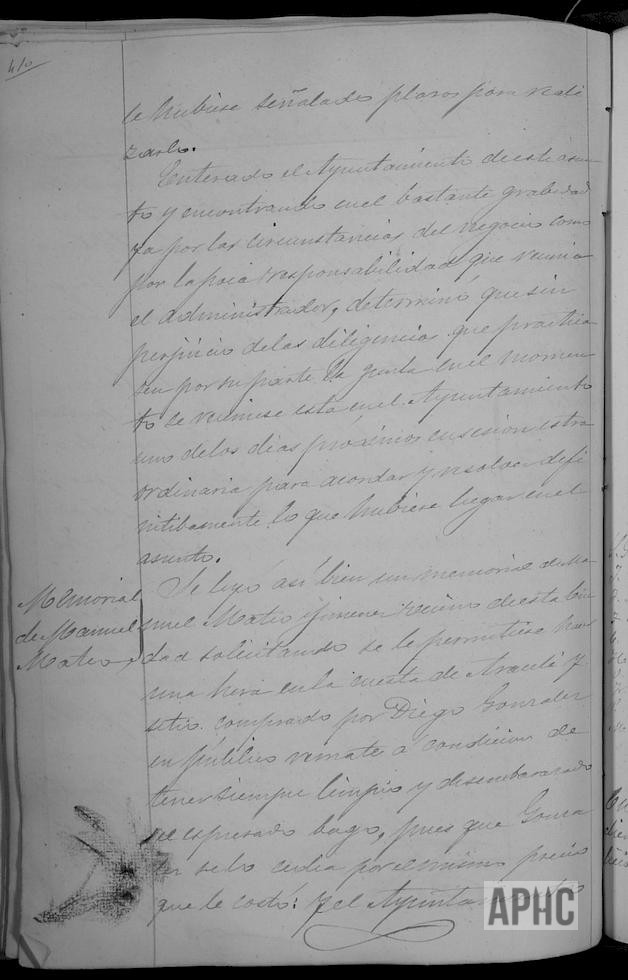 410
le hubiese señalado plazos para reali
zarlo.
Enterado el Ayuntamiento de este asun
to y encontrando en el bastante grabedad
ya por las circunstancias del negocio como
por la poca responsabilidad que reunia
el administrador, determinó que sin
perjuicio de las diligencias que practica
sen por su parte la junta en el momen
to se reuniese esta en el Ayuntamiento
uno de los dias próximos en sesion estra
ordinaria para acordar y resolver defi
nitibamente lo que hubiese lugar en el
asunto.
Memorial
de Manuel
Mateo
Se leyó así bien un memorial de Ma
nuel Mateo Gimenez vecino de esta Ciu
dad solicitando se le permitiese hacer
una hera en la cuesta de y
sitio comprado por Diego Gonzalez
en público remate á condicion de
tener siempre limpio y desembarazado
el espresado bago, pues que Gonza
lez se lo cedia por el mismo precio
que le costó: y el Ayuntamiento
APHC